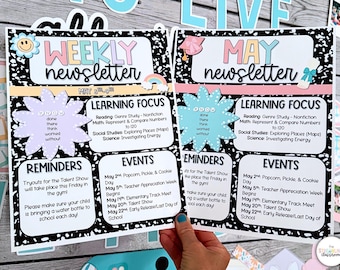 LIVE
WEEKLY
newsletter
LEARNING FOCUS
Reading: Genre Study - Nonfiction
Math: Represent & Compare Numbers
to 120
Social Studies: Exploring Places (Maps)
Science: Investigating Energy
REMINDERS
Tryouts for the Talent Show
will take place this Friday in
the gym!
Please make sure your child
is bringing a water bottle to
school each day!
EVENTS
May 2nd: Popcorn, Pickle, & Cookie
Day
May 5th: Teacher Appreciation Week
Begins
May 19th: Elementary Track Meet
May 20th: Talent Show
May 22nd: Early Release/Last Day of
School
MAY
newsletter
LEARNING FOCUS
Reading: Genre Study - Nonfiction
Math: Represent & Compare Numbers
to 120
Social Studies: Exploring Places (Maps)
Science: Investigating Energy
EVENTS
May 2nd: Popcorn, Pickle, & Cookie
Day
May 5th: Teacher Appreciation Week
Begins
May 19th: Elementary Track Meet
May 20th: Talent Show
May 22nd: Early Release/Last Day of
School